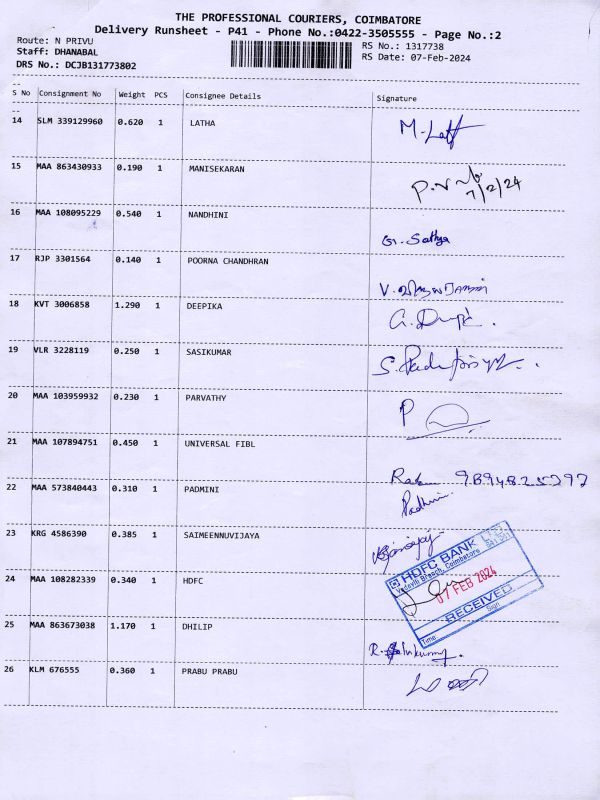 THE PROFESSIONAL COURIERS, COIMBATORE
Delivery Runsheet - P41 - Phone No.:0422-3505555 - Page No.:2
Route: N PRIVU RS No.: 1317738
Staff: DHANABAL RS Date: 07-Feb-2024
DRS No.: DCJB131773802
S No Consignment No Weight PCS Consignee Details Signature
14 SLM 339129960 0.620 1 LATHA M. Latha
15 MAA 863430933 0.190 1 MANISEKARAN
7/2/24
16 MAA 108095229 0.540 1 NANDHINI G. Sathya
17 RJP 3301564 0.140 1 POORNA CHANDHRAN V.
18 KVT 3006858 1.290 1 DEEPIKA
19 VLR 3228119 0.250 1 SASIKUMAR S.
20 MAA 103959932 0.230 1 PARVATHY P
21 MAA 107894751 0.450 1 UNIVERSAL FIBL
22 MAA 573840443 0.310 1 PADMINI Padmini
23 KRG 4586390 0.385 1 SAIMEENNUVIJAYA
24 MAA 108282339 0.340 1 HDFC
HDFC BANK LTD
Vadavalli Branch, Coimbatore
07 FEB 2024
RECEIVED
Time Sign
25 MAA 863673038 1.170 1 DHILIP
26 KLM 676555 0.360 1 PRABU PRABU